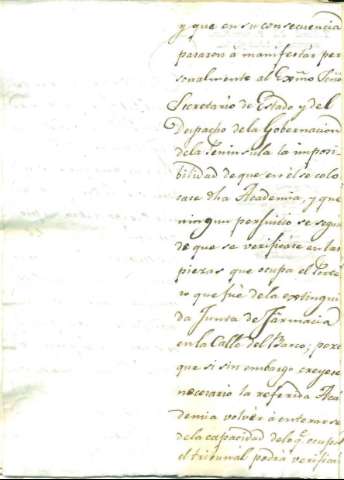 y que en su consecuencia
pasaron à manifestar per
sonalmente al Exmo Señor
Secretario de Estado y del
Despacho de la Gobernacion
de la Peninsula la imposi-
bilidad de que en él se colo
case dha Academia, y que
ningun perjuicio se sigue
de que se verificase en las
piezas que ocupa el Porte
ro que fué de la extingui
da Junta de Farmacia
en la Calle del Barco; pero
que si sin embargo creyese
necesario la referida Aca
demia volver à enterarse
de la capacidad de lo q.e ocupa
el tribunal podra verificar